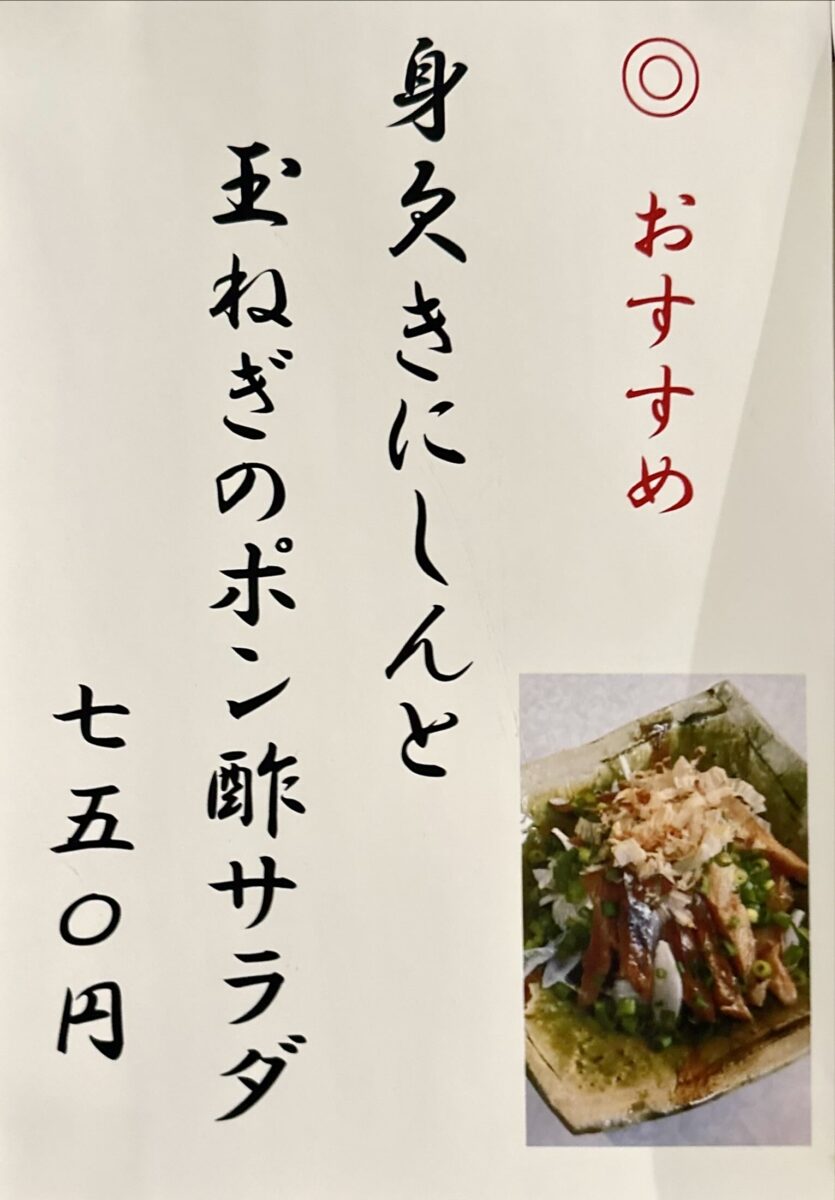 ◎ おすすめ
身欠きにしんと
玉ねぎのポン酢サラダ
七五〇円